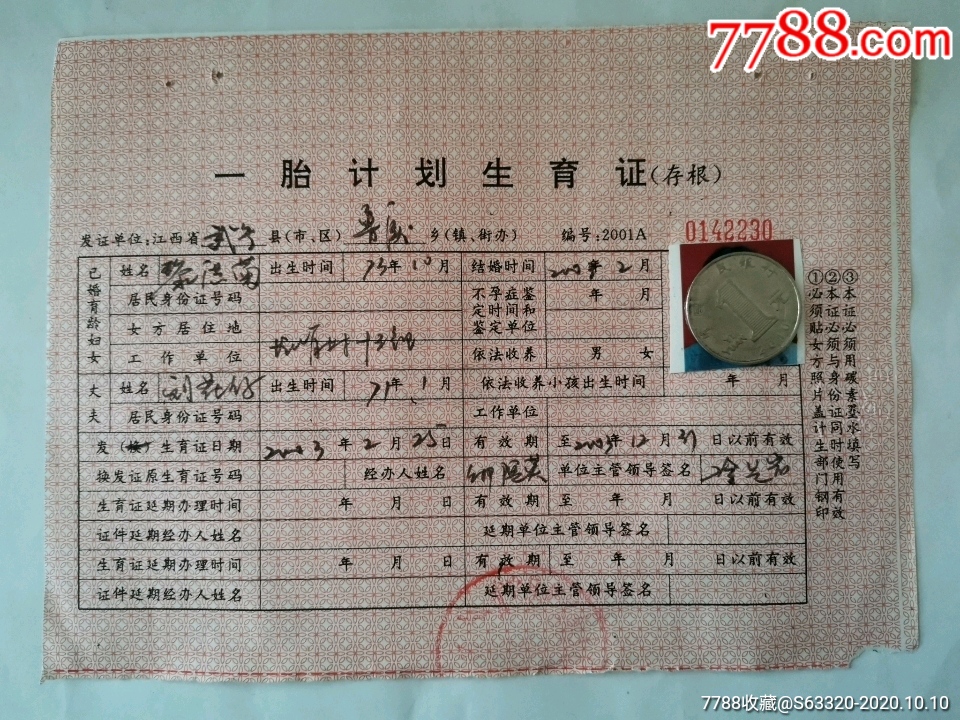 7788.com
一胎计划生育证(存根)
发证单位:江西省武宁县(市、区) 乡(镇、街办) 编号:2001A 0142230
已婚育龄妇女
姓名 出生时间 73年10月 结婚时间 年2月
居民身份证号码 不孕症鉴定时间和鉴定单位 年 月
女方居住地
工作单位 依法收养 男 女
丈夫
姓名 出生时间 71年1月 依法收养小孩出生时间 年 月
居民身份证号码 工作单位
发(换)生育证日期 2003年2月25日 有效期 至 年12月31日以前有效
换发证原生育证号码 经办人姓名 单位主管领导签名
生育证延期办理时间 年 月 日 有效期 至 年 月 日以前有效
证件延期经办人姓名 延期单位主管领导签名
生育证延期办理时间 年 月 日 有效期 至 年 月 日以前有效
证件延期经办人姓名 延期单位主管领导签名
③本证必须用碳素墨水填写有效
②本证必须与身份证同时使用
①必须贴女方照片盖计生部门钢印
7788收藏@S63320-2020.10.10